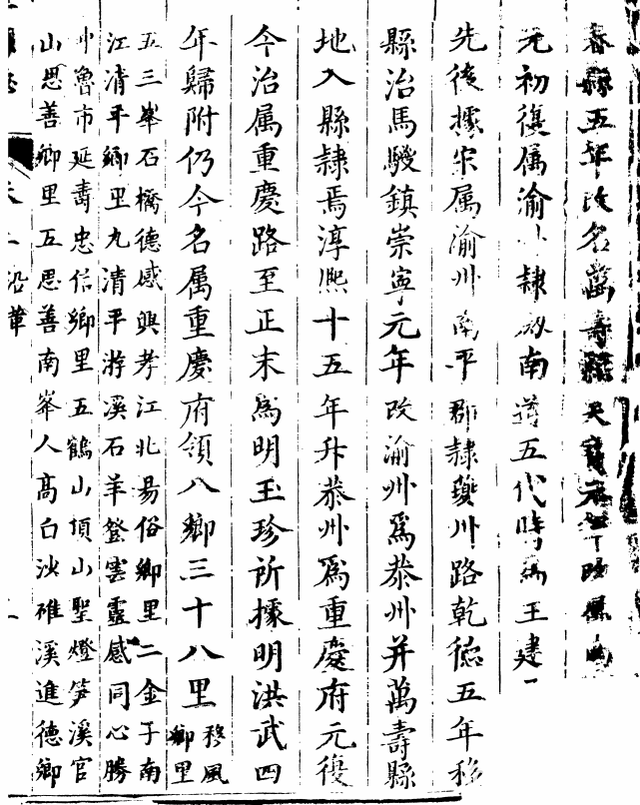 春縣五年改名萬壽縣天寶元年改屬
元初復属渝州隷劒南道五代時爲王建
先後據宋属渝州南平郡隷夔州路乾德五年移
縣治馬騣鎮崇寧元年改渝州爲恭州并萬壽縣
地入縣隷焉淳熙十五年升恭州爲重慶府元復
今治属重慶路至正末爲明玉珍所據明洪武四
年歸附仍今名属重慶府領八鄉三十八里穆風鄉里
五三峯石橋德感興孝江北易俗鄉里二金子南
江清平鄉里九清平游溪石羊登雲靈感同心勝
冲魯市延壽忠信鄉里五鶴山頂山聖燈笋溪官
山思善鄉里五思善南峯人高白沙碓溪進德鄉
沿革